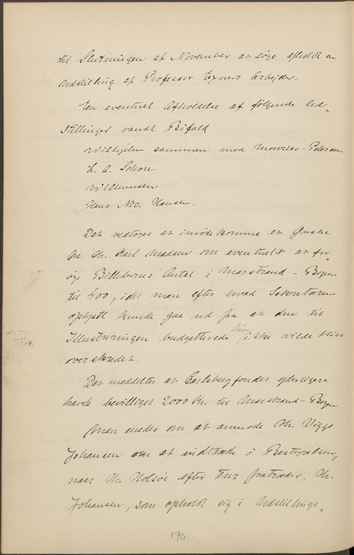 til Slutningen af November at søge afholdt en
Uddstilling af Professor Exners Arbejder.
Den eventuel Afholdelse af følgende Ud-
stillinger vandt Bifald
Vilhjelm sammen med Mourier-Petersen
L. A. Schou
Willumsen
Hans Nic. Hansen.
Det vedtoges at imødekomme en Ønske
fra Hr. Karl Madsen om eventuelt at for-
øge Billedernes Antal i Marstrand-Bogen
til 400, idet man efter hvad Sekretæren
oplyste kunde gaa ud fra at den til
Illustreringen budgetterede Sum ikke vilde blive
overskredet.
Der meddeltes at Carlsbergfondet yderligere
havde bevilliget 2000 Kr. til Marstrand-Bogen
Man enedes om at anmode Hr. Viggo
Johansen om at indtræde i Bestyrelsen,
naar Hr. Holsøe efter Tur fratraadte. Hr.
Johansen, som opholdt sig i Udstillings-
190